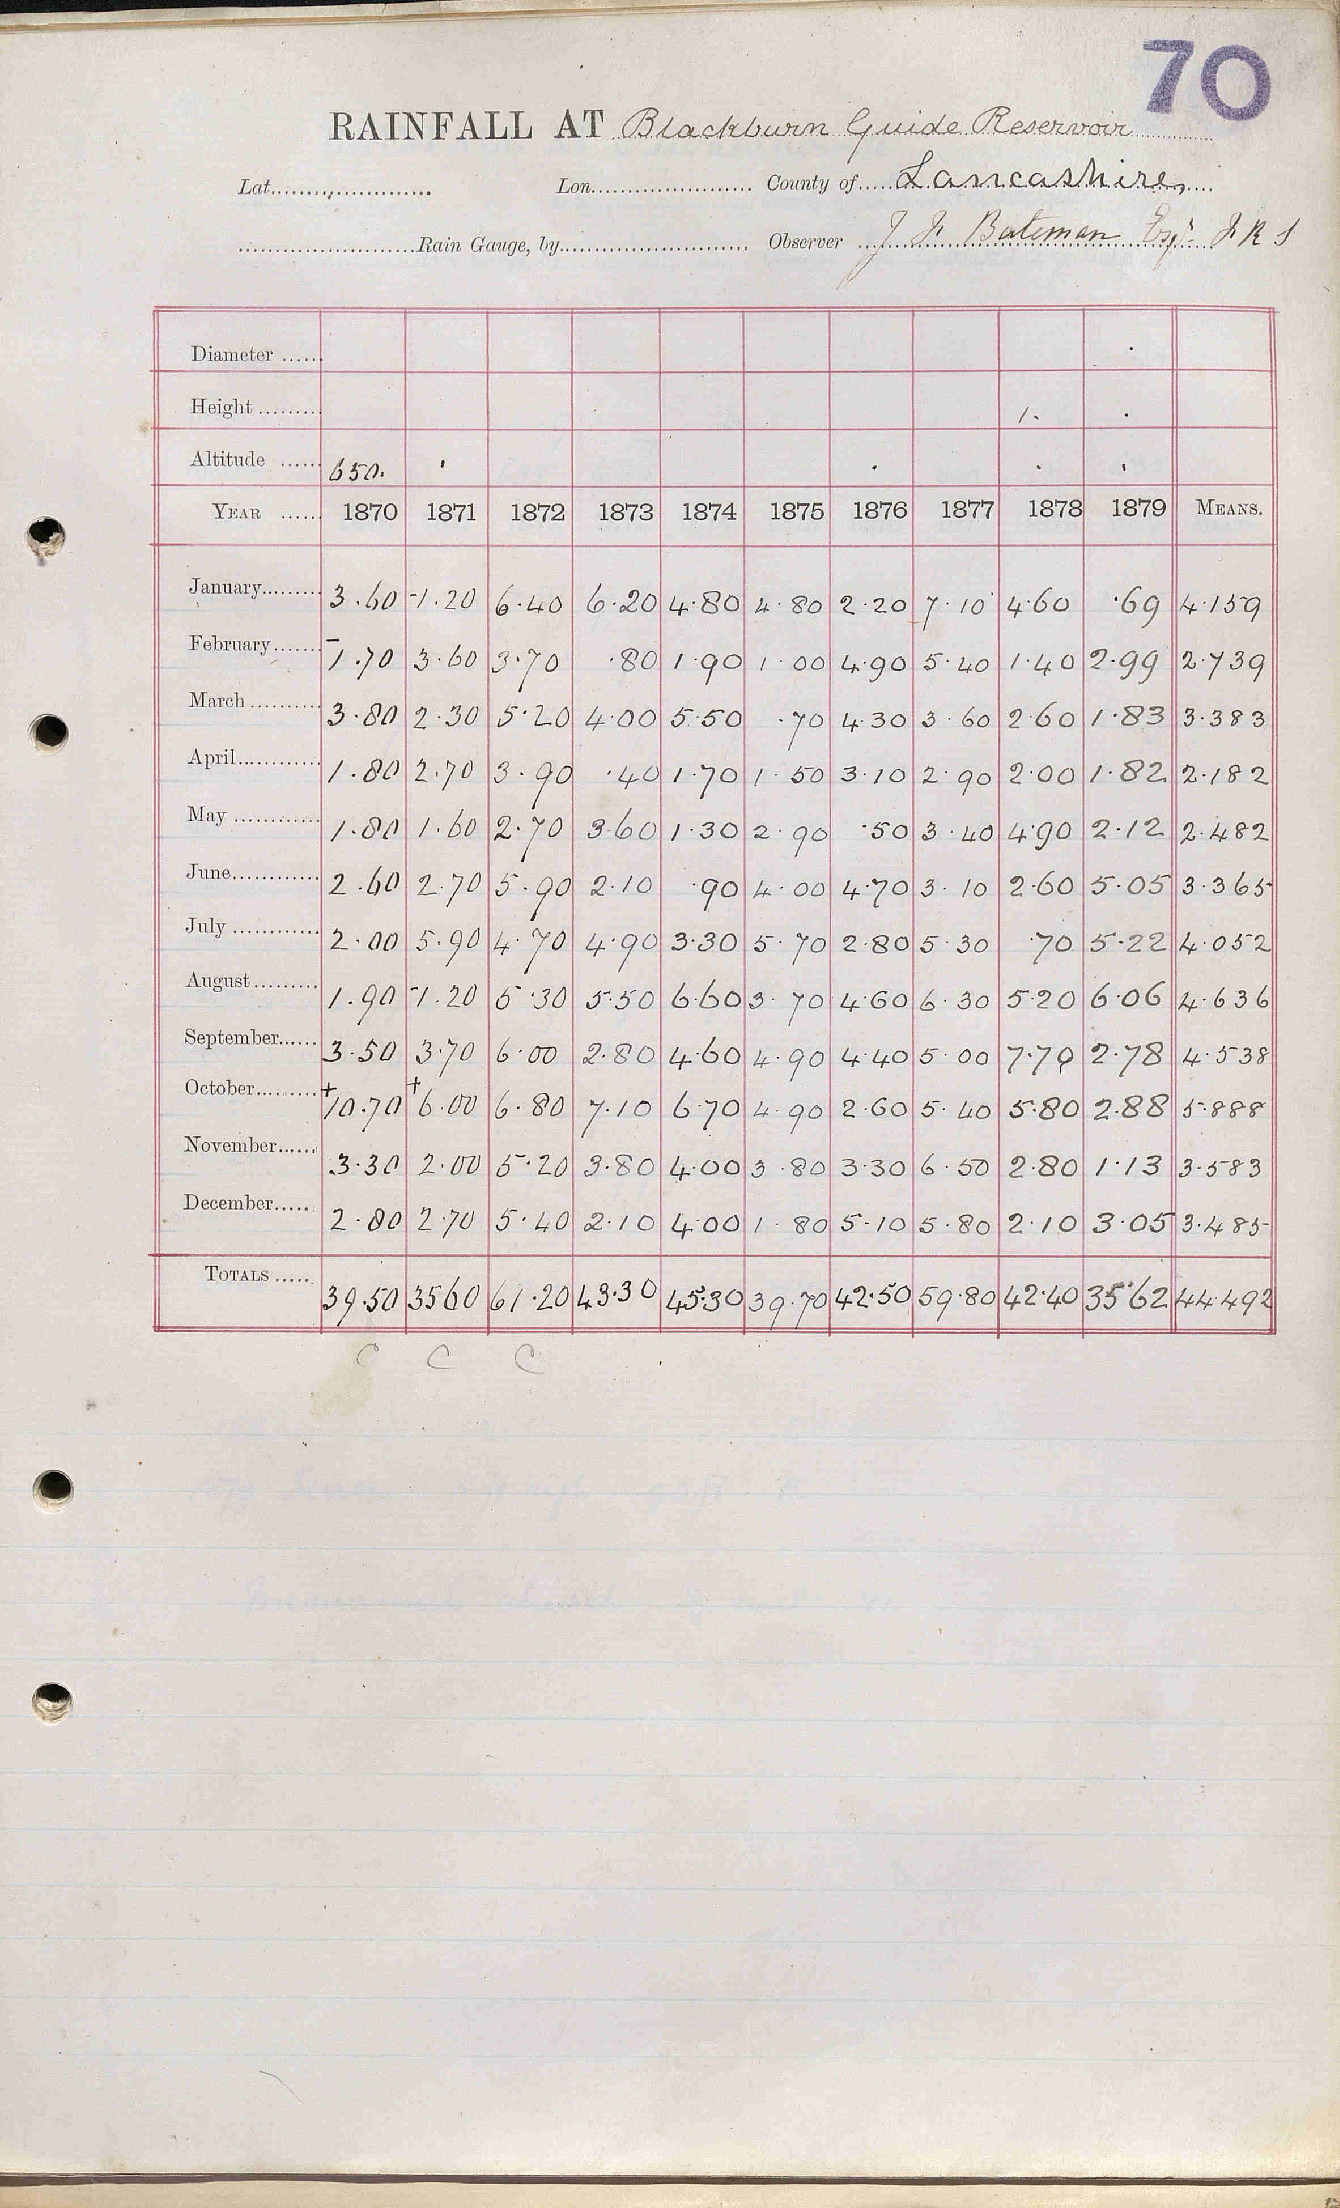 70
RAINFALL AT Blackburn Guide Reservoir
Lat. Lon. County of Lancashire
Rain Gauge, by Observer J F Bateman Esqr F R S
Diameter
Height 1.
Altitude 650.
YEAR 1870 1871 1872 1873 1874 1875 1876 1877 1878 1879 MEANS.
January 3.60 -1.20 6.40 6.20 4.80 4.80 2.20 7.10 4.60 .69 4.159
February -1.70 3.60 3.70 .80 1.90 1.00 4.90 5.40 1.40 2.99 2.739
March 3.80 2.30 5.20 4.00 5.50 .70 4.30 3.60 2.60 1.83 3.383
April 1.80 2.70 3.90 .40 1.70 1.50 3.10 2.90 2.00 1.82 2.182
May 1.80 1.60 2.70 3.60 1.30 2.90 .50 3.40 4.90 2.12 2.482
June 2.60 2.70 5.90 2.10 .90 4.00 4.70 3.10 2.60 5.05 3.365
July 2.00 5.90 4.70 4.90 3.30 5.70 2.80 5.30 .70 5.22 4.052
August 1.90 -1.20 5.30 5.50 6.60 3.70 4.60 6.30 5.20 6.06 4.636
September 3.50 3.70 6.00 2.80 4.60 4.90 4.40 5.00 7.70 2.78 4.538
October +10.70 +6.00 6.80 7.10 6.70 4.90 2.60 5.40 5.80 2.88 5.888
November 3.30 2.00 5.20 3.80 4.00 3.80 3.30 6.50 2.80 1.13 3.583
December 2.80 2.70 5.40 2.10 4.00 1.80 5.10 5.80 2.10 3.05 3.485
TOTALS 39.50 35.60 61.20 43.30 45.30 39.70 42.50 59.80 42.40 35.62 44.492
C C C